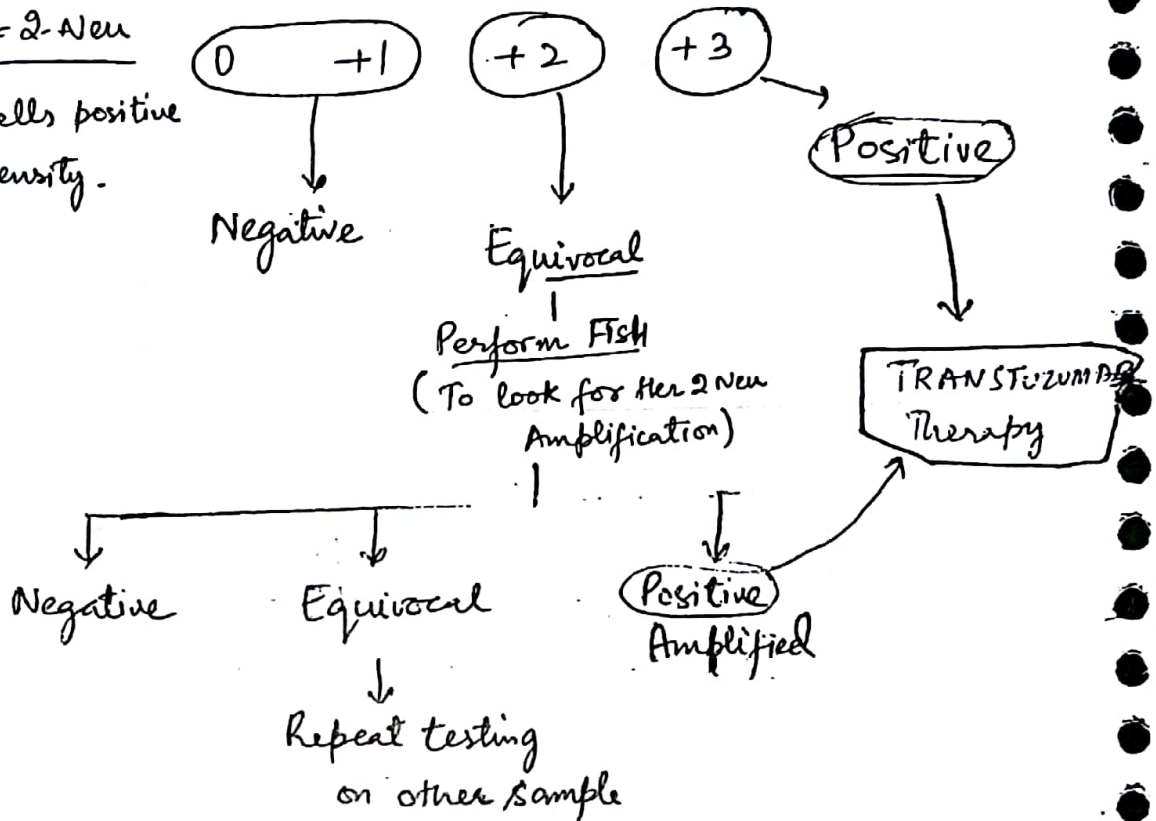 = 2-Neu
ells positive
ensity.
0 +1
+2
+3
Negative
Equivocal
Positive
Perform FISH
(To look for Her 2 Neu
Amplification)
TRANSTUZUMAB
Therapy
Negative
Equivocal
Positive
Amplified
Repeat testing
on other sample